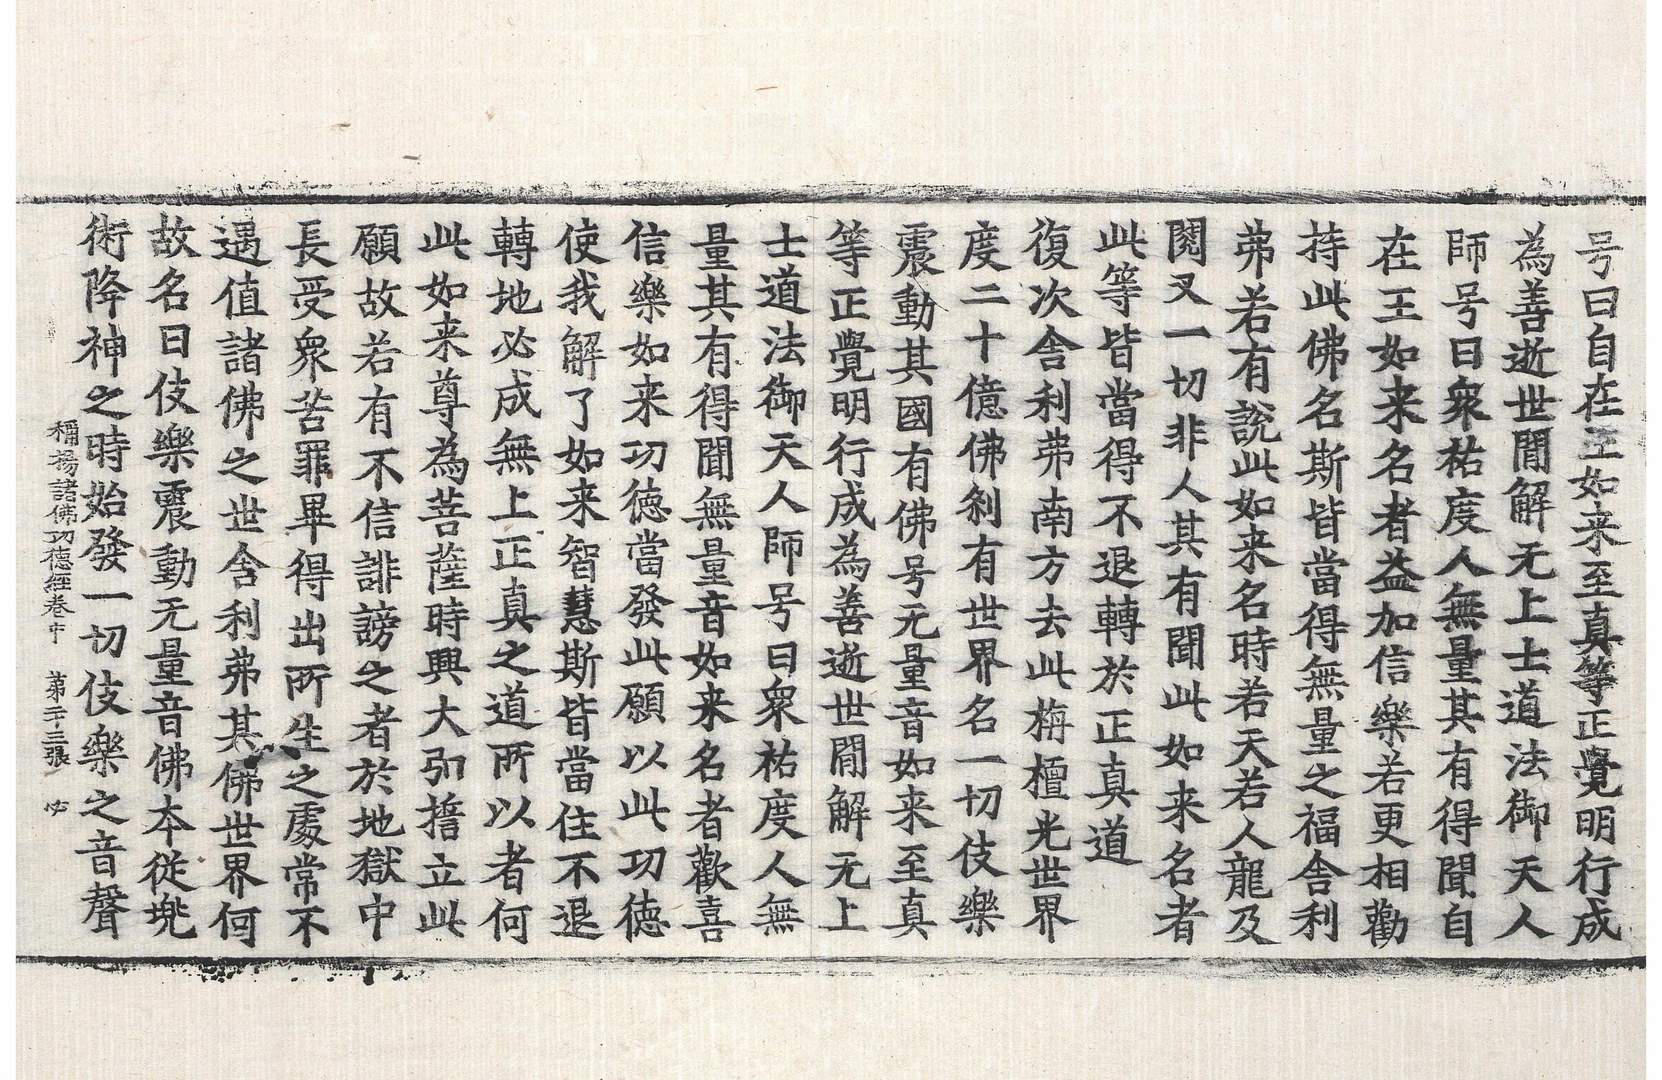 号曰自在王如来至真等正覺明行成
為善逝世閒解无上士道法御天人
師号曰衆祐度人無量其有得聞自
在王如来名者益加信樂若更相勸
持此佛名斯皆當得無量之福舎利
弗若有說此如来名時若天若人龍及
閱叉一切非人其有聞此如来名者
此等皆當得不退轉於正真道
復次舎利弗南方去此栴檀光世界
度二十億佛刹有世界名一切伎樂
震動其國有佛号无量音如来至真
等正覺明行成為善逝世閒解无上
士道法御天人師号曰衆祐度人無
量其有得聞無量音如来名者歡喜
信樂如来功徳當發此願以此功徳
使我解了如来智慧斯皆當住不退
轉地必成無上正真之道所以者何
此如来尊為菩薩時興大弘擔立此
願故若有不信誹謗之者於地獄中
長受衆苦罪畢得出所生之處常不
遇值諸佛之世舎利弗其佛世界何
故名曰伎樂震動无量音佛本從兠
術降神之時始發一切伎樂之音聲
稱揚諸佛功徳經卷中 第二十三張 必